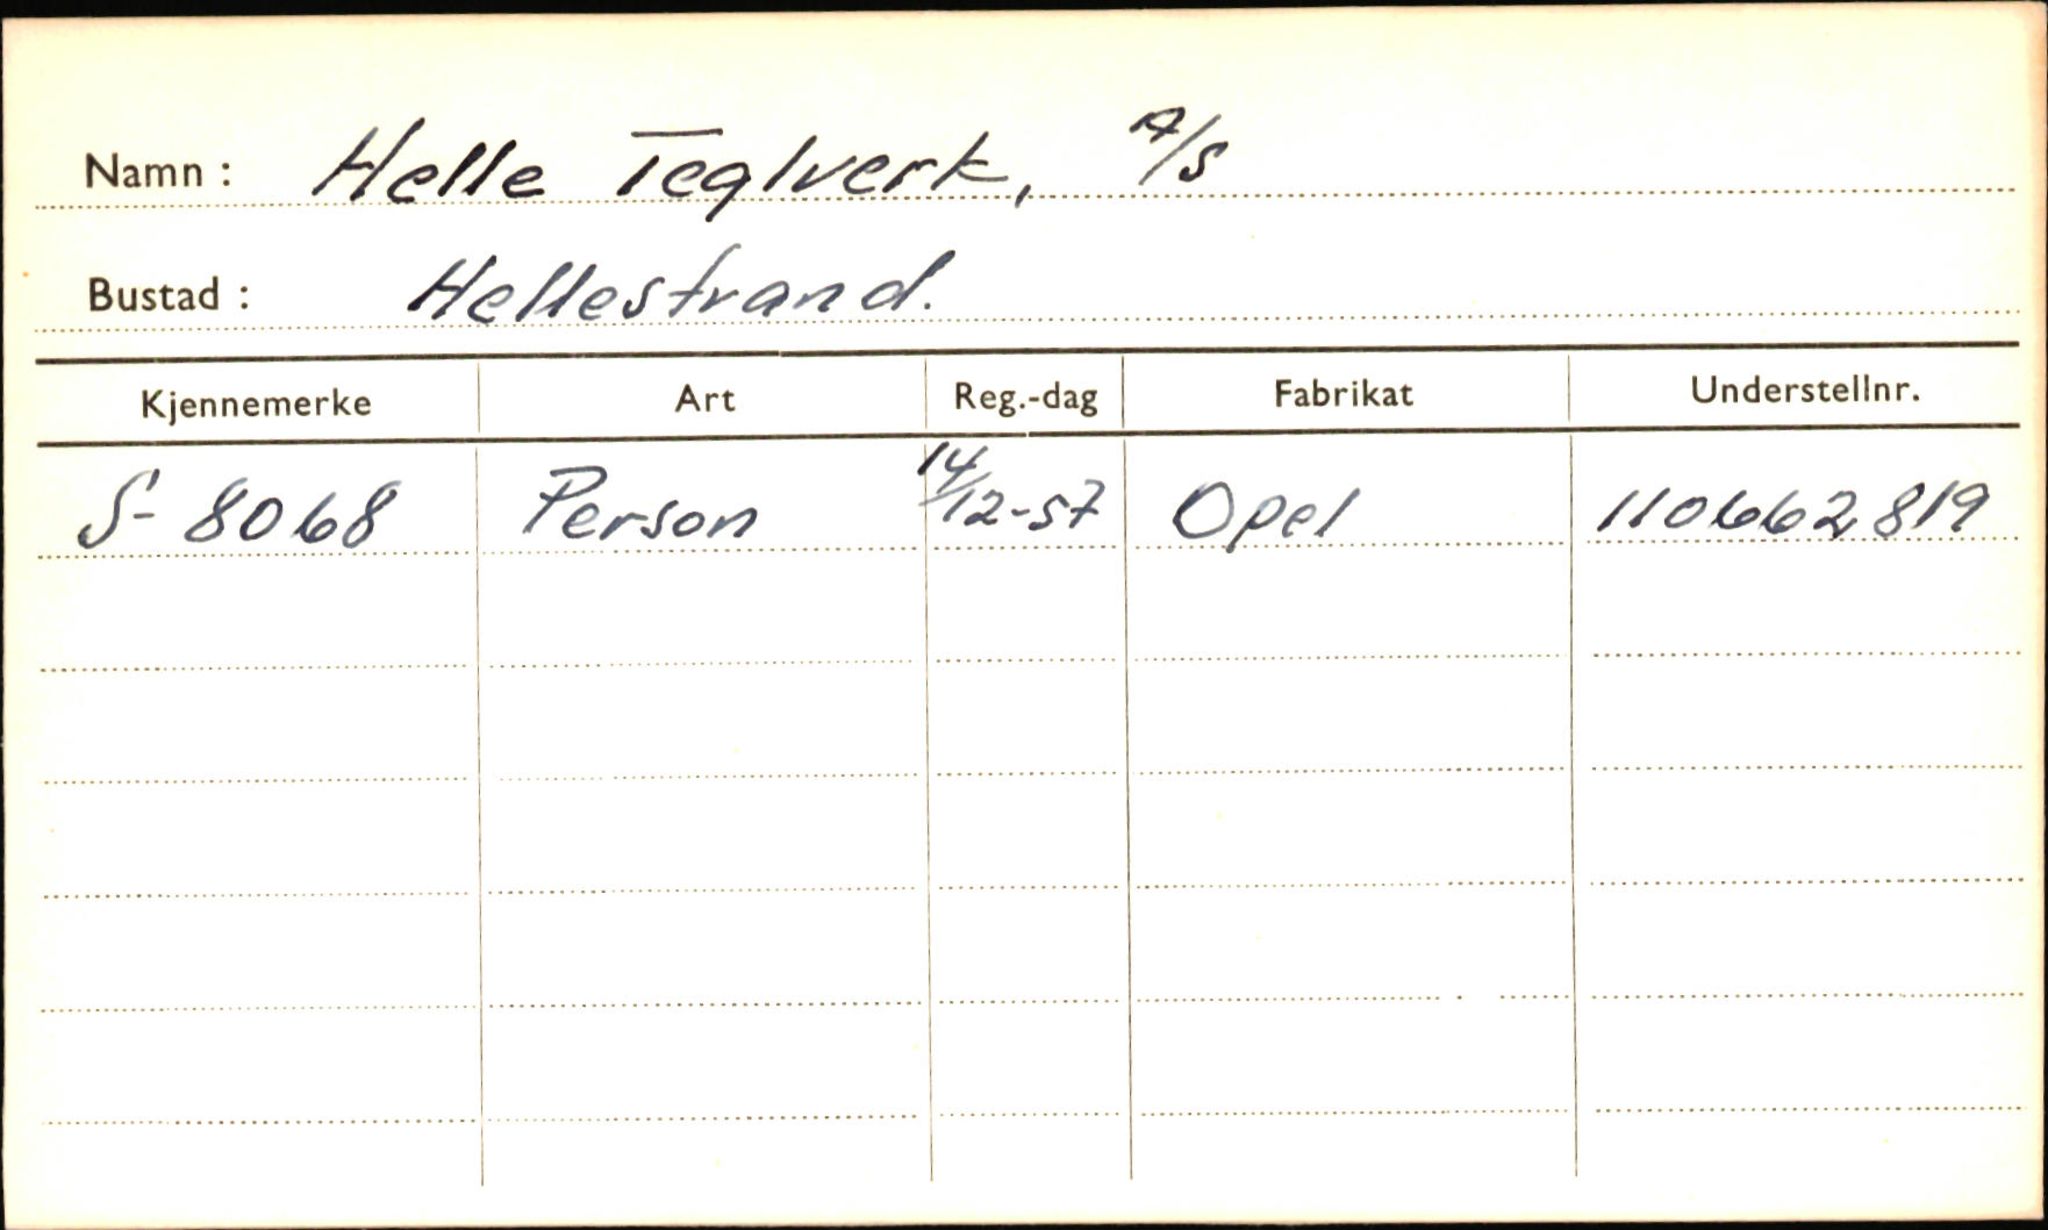 Namn : Helle Teglverk, A/S
Bustad : Hellestrand.
Kjennemerke Art Reg.-dag Fabrikat Understellnr.
S- 8068 Person 14/12-57 Opel 110662819